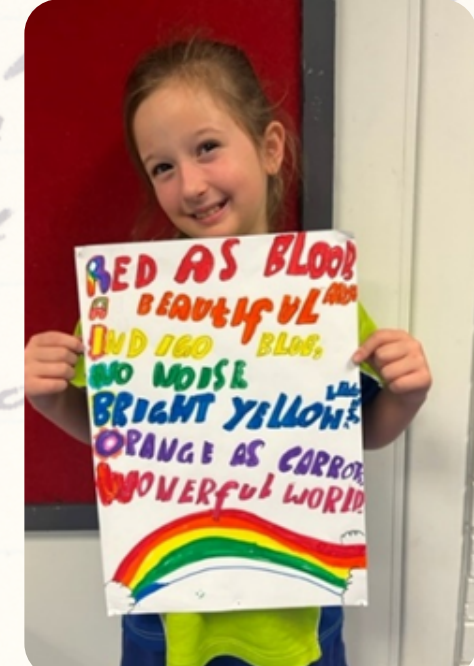 RED AS BLOOD
A BEAUTIFUL
INDIGO BLUE,
NO NOISE
BRIGHT YELLOW
ORANGE AS CARROTS,
WONERFUL WORLD.